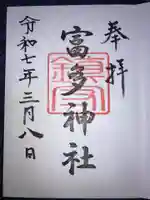 奉拝
富多神社
令和七年三月八日